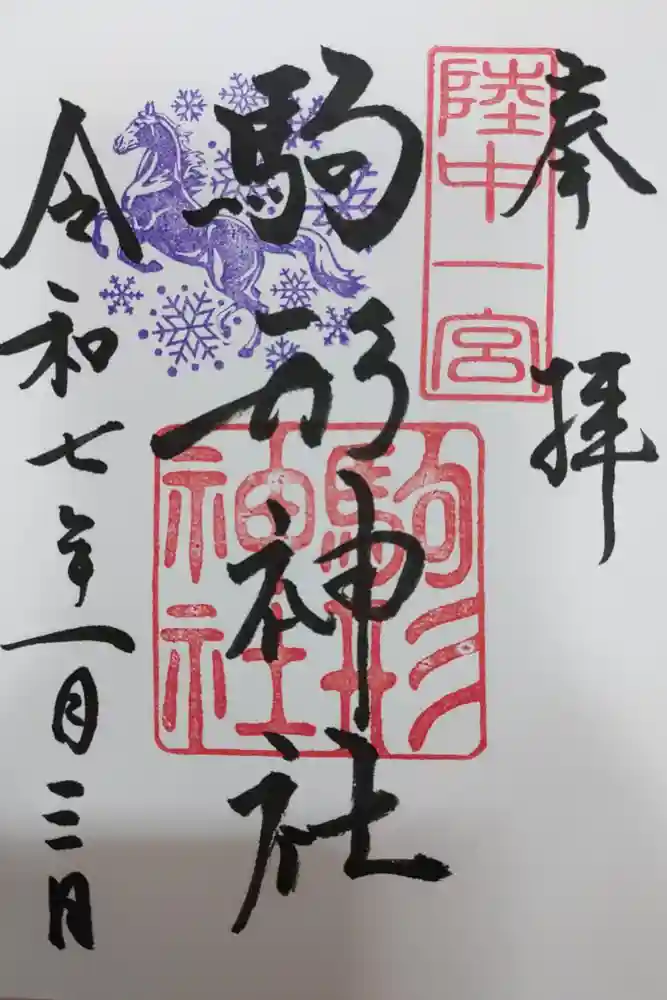 奉拝
陸中一宮
駒形神社
駒形
神社
令和七年一月三日